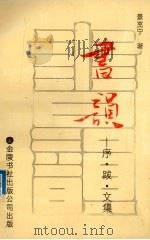 景克宁 著
書韻
序·跋·文集
金陵书社出版公司出版